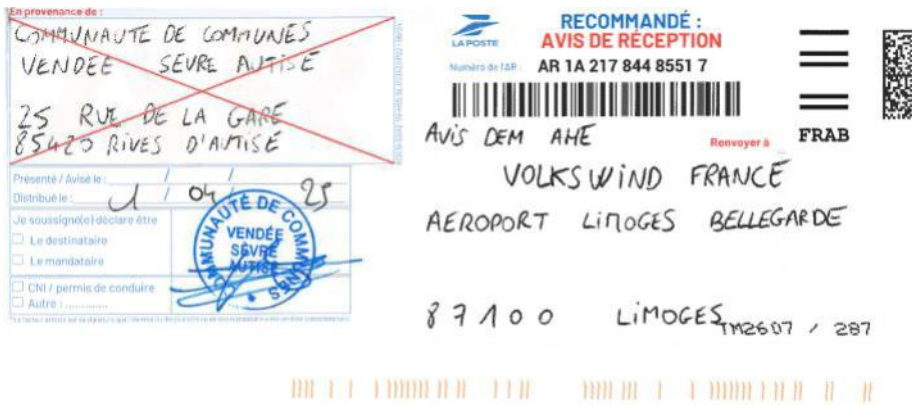 En provenance de :
COMMUNAUTE DE COMMUNES
VENDEE SEVRE AUTISE
25 RUE DE LA GARE
85420 RIVES D'AUTISE
Présenté / Avisé le : / /
Distribué le : 1 / 04 / 25
Je soussigné(e) déclare être
Le destinataire
Le mandataire
CNI / permis de conduire
Autre : ............
COMMUNAUTÉ DE COMMUNES
VENDÉE
SÈVRE
AUTISE
LA POSTE
RECOMMANDÉ :
AVIS DE RÉCEPTION
Numéro de l'AR : AR 1A 217 844 8551 7
FRAB
AVIS DEM AHE
Renvoyer à
VOLKSWIND FRANCE
AEROPORT LIMOGES BELLEGARDE
87100 LIMOGES
TM2607 / 287